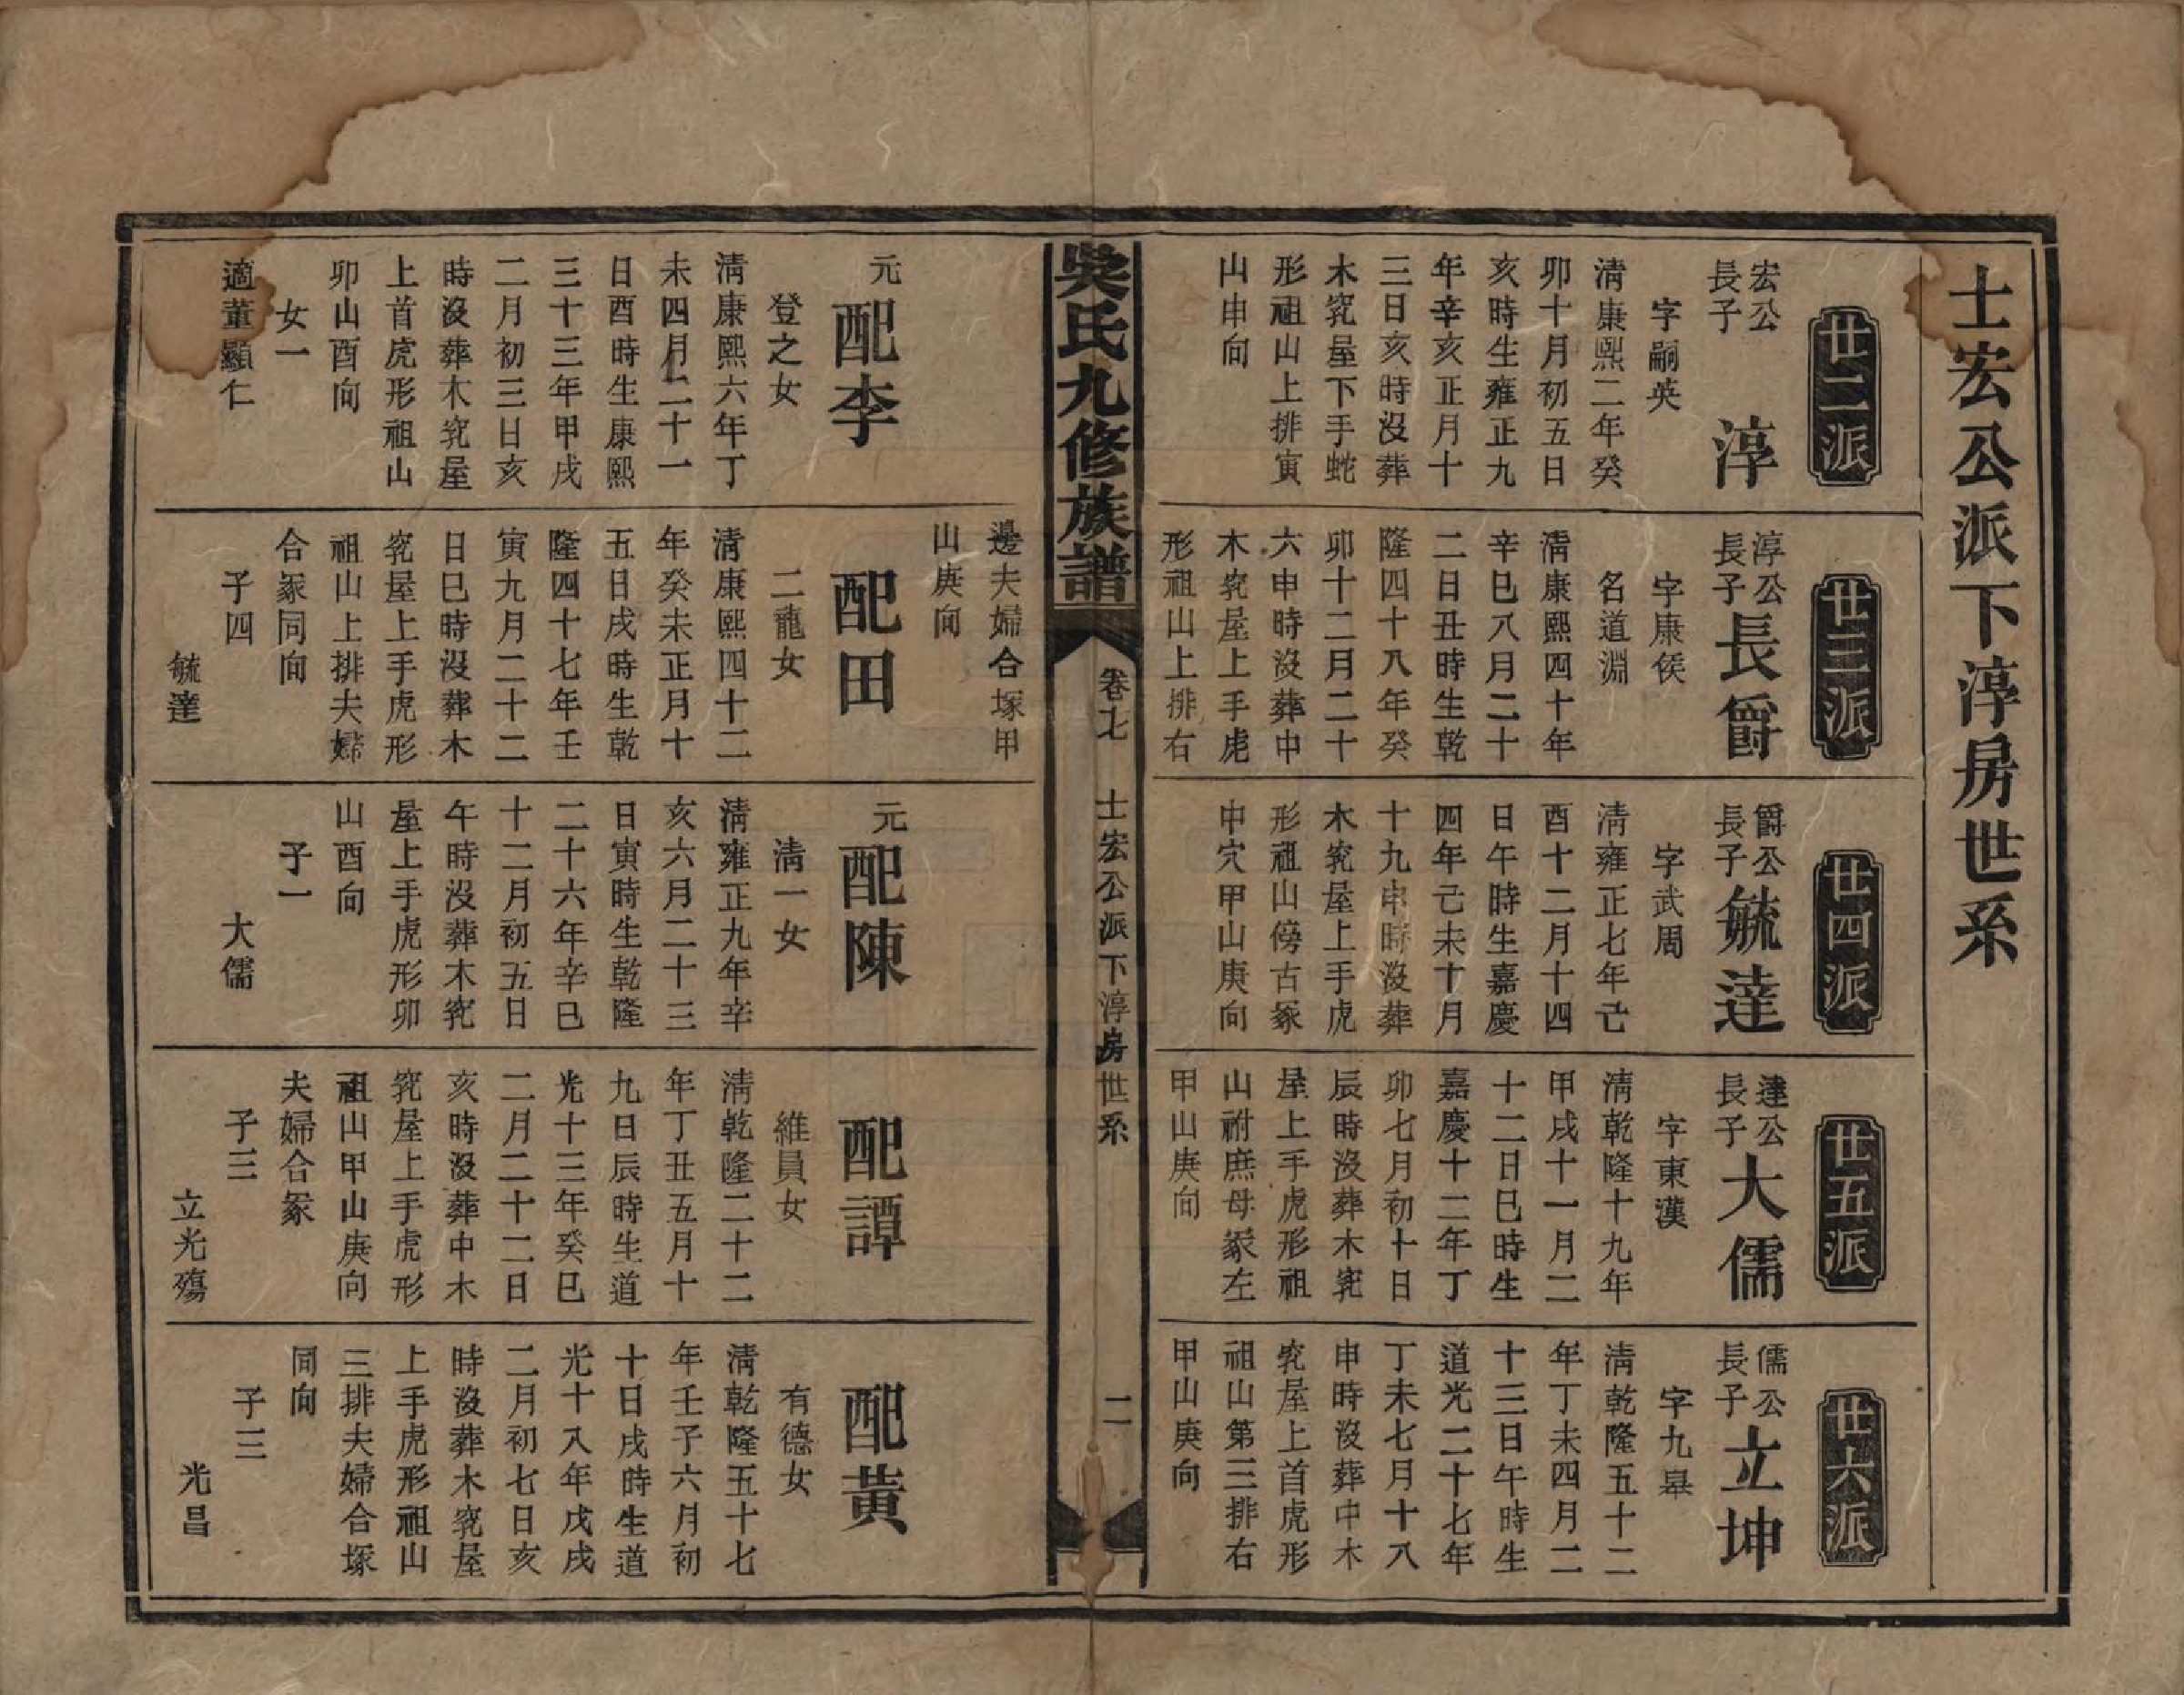 士宏公派下淳房世系
廿二派
宏公
長子
淳
字嗣英
清康熙二年癸
卯十月初五日
亥時生雍正九
年辛亥正月十
三日亥時沒葬
木㝎屋下手蛇
形祖山上排寅
山申向
廿三派
淳公
長子
長爵
字康侯
名道淵
清康熙四十年
辛巳八月二十
二日丑時生乾
隆四十八年癸
卯十二月二十
六申時沒葬中
木㝎屋上手虎
形祖山上排右
邊夫婦合塚甲
山庚向
廿四派
爵公
長子
毓達
字武周
清雍正七年己
酉十二月十四
日午時生嘉慶
四年己未十月
十九申時沒葬
木㝎屋上手虎
形祖山傍古冢
中穴甲山庚向
廿五派
達公
長子
大儒
字東漢
清乾隆十九年
甲戌十一月二
十二日巳時生
嘉慶十二年丁
卯七月初十日
辰時沒葬木㝎
屋上手虎形祖
山祔庶母冢左
甲山庚向
廿六派
儒公
長子
立坤
字九皋
清乾隆五十二
年丁未四月二
十三日午時生
道光二十七年
丁未七月十八
申時沒葬中木
㝎屋上首虎形
祖山第三排右
甲山庚向
吳氏九修族譜
卷七
士宏公派下淳房世系
二
元
配李
登之女
清康熙六年丁
未四月二十一
日酉時生康熙
三十三年甲戌
二月初三日亥
時沒葬木㝎屋
上首虎形祖山
卯山酉向
女一
適董顯仁
配田
二龍女
清康熙四十二
年癸未正月十
五日戌時生乾
隆四十七年壬
寅九月二十二
日巳時沒葬木
㝎屋上手虎形
祖山上排夫婦
合冢同向
子四
毓達
元
配陳
清一女
清雍正九年辛
亥六月二十三
日寅時生乾隆
二十六年辛巳
十二月初五日
午時沒葬木㝎
屋上手虎形卯
山酉向
子一
大儒
配譚
維員女
清乾隆二十二
年丁丑五月十
九日辰時生道
光十三年癸巳
二月二十二日
亥時沒葬中木
㝎屋上手虎形
祖山甲山庚向
夫婦合冢
子三
立光殤
配黃
有德女
清乾隆五十七
年壬子六月初
十日戌時生道
光十八年戊戌
二月初七日亥
時沒葬木㝎屋
上手虎形祖山
三排夫婦合塚
同向
子三
光昌